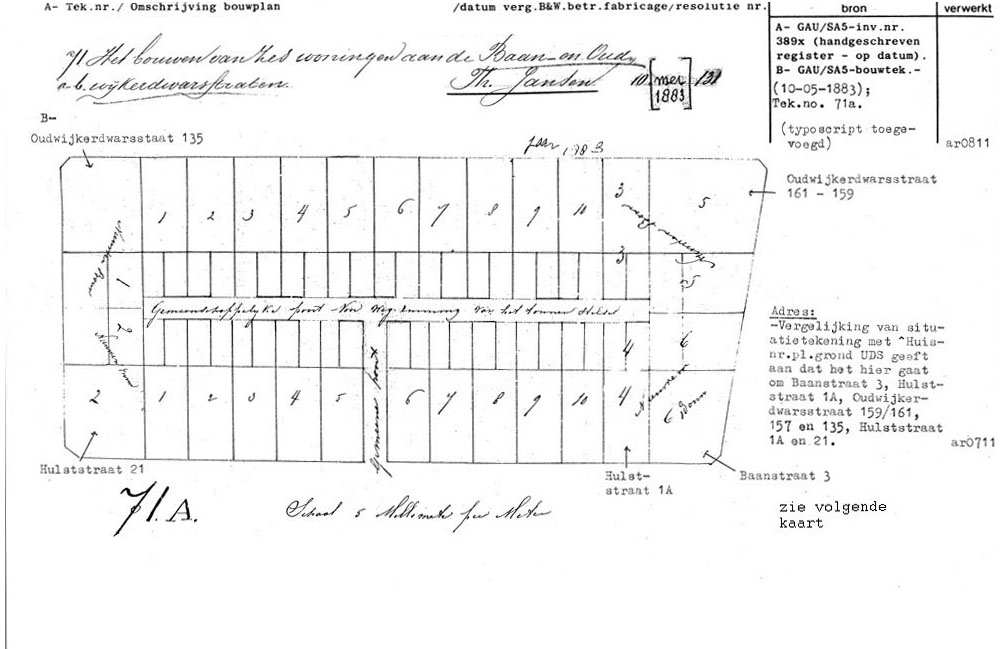 A- Tek.nr./ Omschrijving bouwplan /datum verg.B&W.betr.fabricage/resolutie nr. bron verwerkt
71 Het bouwen van zes woningen aan de Baan- en Oud-
a.b. wijkerdwarsstraten. Th. Jansen 10 [mei 1883] 131
A- GAU/SA5-inv.nr.
389x (handgeschreven
register - op datum).
B- GAU/SA5-bouwtek.-
(10-05-1883);
Tek.no. 71a.
(typoscript toege-
voegd) ar0811
B-
Oudwijkerdwarsstaat 135
Oudwijkerdwarsstraat
161 - 159
1 2 3 4 5 6 7 8 9 10 3 5
3
1 5
Gemeenschappelyke poort
2 4 6
2 1 2 3 4 5 6 7 8 9 10 4 6
Gemeene poort
Adres:
-Vergelijking van situ-
atietekening met ^Huis-
nr.pl.grond UDS geeft
aan dat het hier gaat
om Baanstraat 3, Hulst-
straat 1A, Oudwijker-
dwarsstraat 159/161,
157 en 135, Hulststraat
1A en 21. ar0711
Hulststraat 21
Hulst-
straat 1A
Baanstraat 3
71.A.
Schaal 5 Millimeter per Meter
zie volgende
kaart